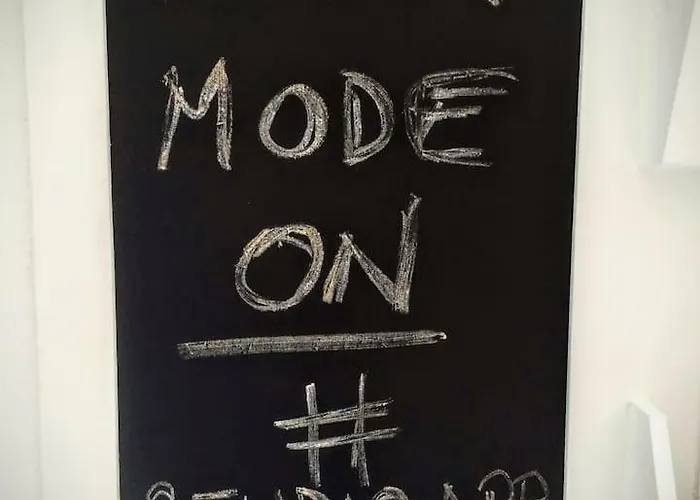 MODE
ON
#